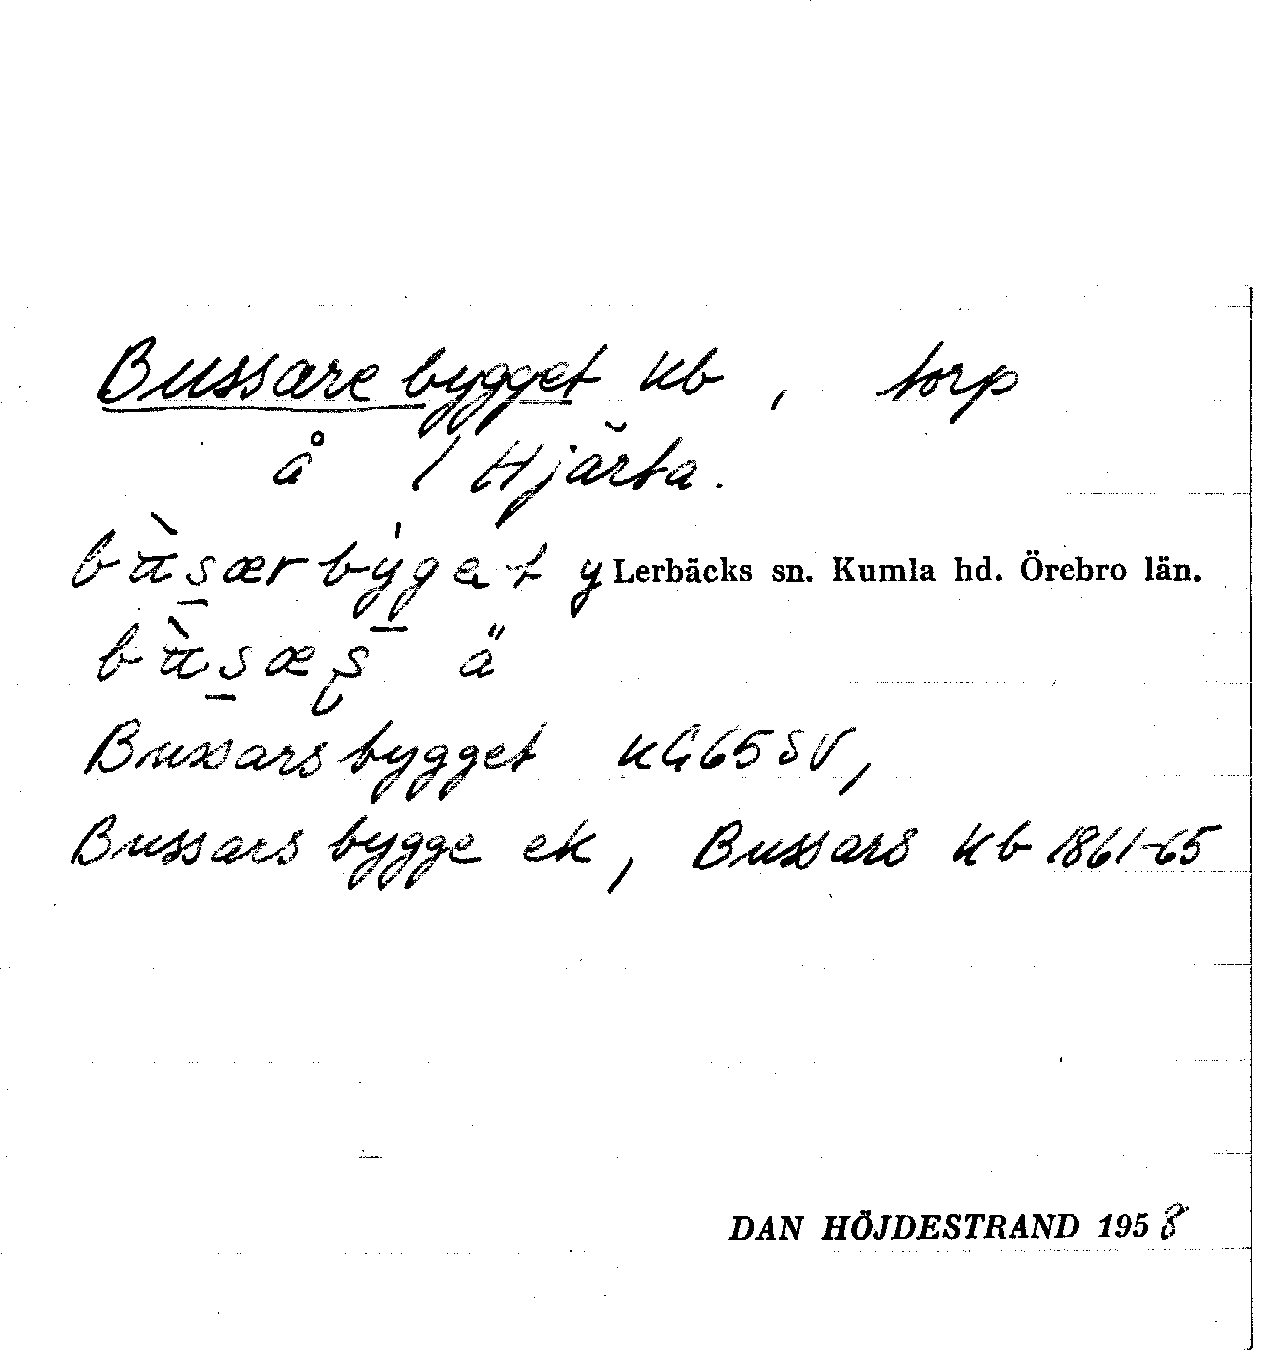 Bussarebygget kb, torp
å 1 Hjärta.
bùsærbyget y Lerbäcks sn. Kumla hd. Örebro län.
bùsæʂ ä
Bussarsbygget kG65SV,
Bussars bygge ek, Bussars kb 1861-65
DAN HÖJDESTRAND 1958